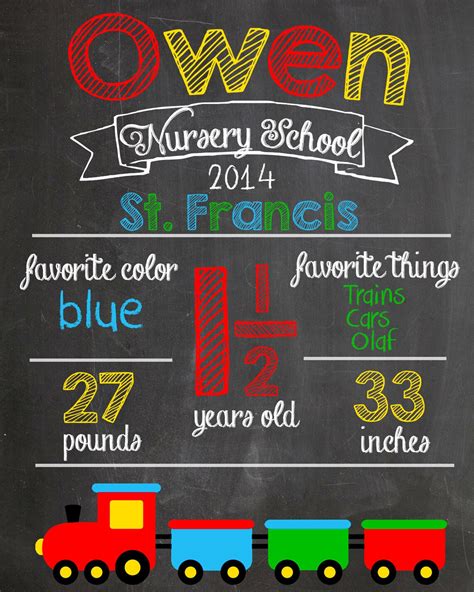 Owen
Nursery School
2014
St. Francis
favorite color
blue
1 1/2
years old
favorite things
Trains
Cars
Olaf
27
pounds
33
inches